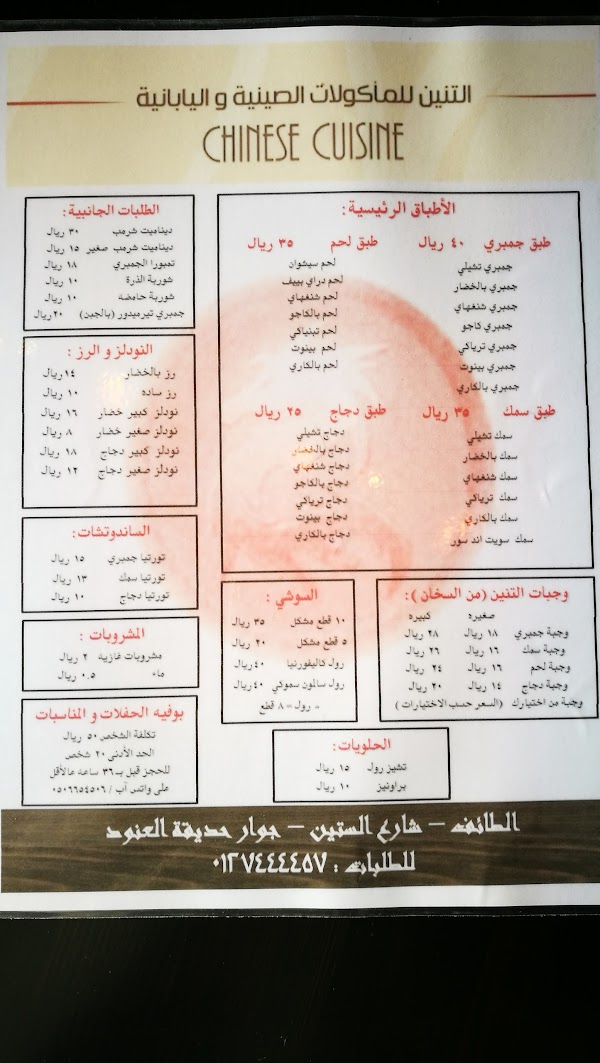 التنين للمأكولات الصينية و اليابانية
CHINESE CUISINE
الأطباق الرئيسية :
طبق جمبري ٤٠ ريال
جمبري تشيلي
جمبري بالخضار
جمبري شنغهاي
جمبري كاجو
جمبري ترياكي
جمبري بينوت
جمبري بالكاري
طبق لحم ٣٥ ريال
لحم سيشوان
لحم دراي بييف
لحم شنغهاي
لحم بالكاجو
لحم تبنياكي
لحم بينوت
لحم بالكاري
طبق سمك ٣٥ ريال
سمك تشيلي
سمك بالخضار
سمك شنغهاي
سمك ترياكي
سمك بالكاري
سمك سويت اند سور
طبق دجاج ٢٥ ريال
دجاج تشيلي
دجاج بالخضار
دجاج شنغهاي
دجاج بالكاجو
دجاج ترياكي
دجاج بينوت
دجاج بالكاري
الطلبات الجانبية :
ديناميت شرمب ٣٠ ريال
ديناميت شرمب صغير ١٥ ريال
تمبورا الجمبري ١٨ ريال
شوربة الذرة ١٠ ريال
شوربة حامضه ١٠ ريال
جمبري تيرميدور (بالجبن) ٢٠ ريال
النودلز و الرز :
رز بالخضار ١٤ ريال
رز ساده ١٠ ريال
نودلز كبير خضار ١٦ ريال
نودلز صغير خضار ٨ ريال
نودلز كبير دجاج ١٨ ريال
نودلز صغير دجاج ١٢ ريال
الساندوتشات :
تورتيا جمبري ١٥ ريال
تورتيا سمك ١٣ ريال
تورتيا دجاج ١٠ ريال
المشروبات :
مشروبات غازيه ٢ ريال
ماء ٠.٥ ريال
بوفيه الحفلات و المناسبات
تكلفة الشخص ٥٠ ريال
الحد الأدنى ٢٠ شخص
للحجز قبل بـ ٣٦ ساعه عالأقل
على واتس آب / ٠٥٠٦٦٥٤٥٠٦
وجبات التنين (من السخان) :
صغيره كبيره
وجبة جمبري ١٨ ريال ٢٨ ريال
وجبة سمك ١٦ ريال ٢٦ ريال
وجبة لحم ١٦ ريال ٢٤ ريال
وجبة دجاج ١٤ ريال ٢٠ ريال
وجبة من اختيارك (السعر حسب الاختيارات)
السوشي :
١٠ قطع مشكل ٣٥ ريال
٥ قطع مشكل ٢٠ ريال
رول كاليفورنيا ٤٠ ريال
رول سالمون سموكي ٤٠ ريال
رول = ٨ قطع
الحلويات :
تشيز رول ١٥ ريال
براونيز ١٠ ريال
الطائف – شارع الستين – جوار حديقة العنود
للطلبات : ٠١٢٧٤٤٤٤٥٧